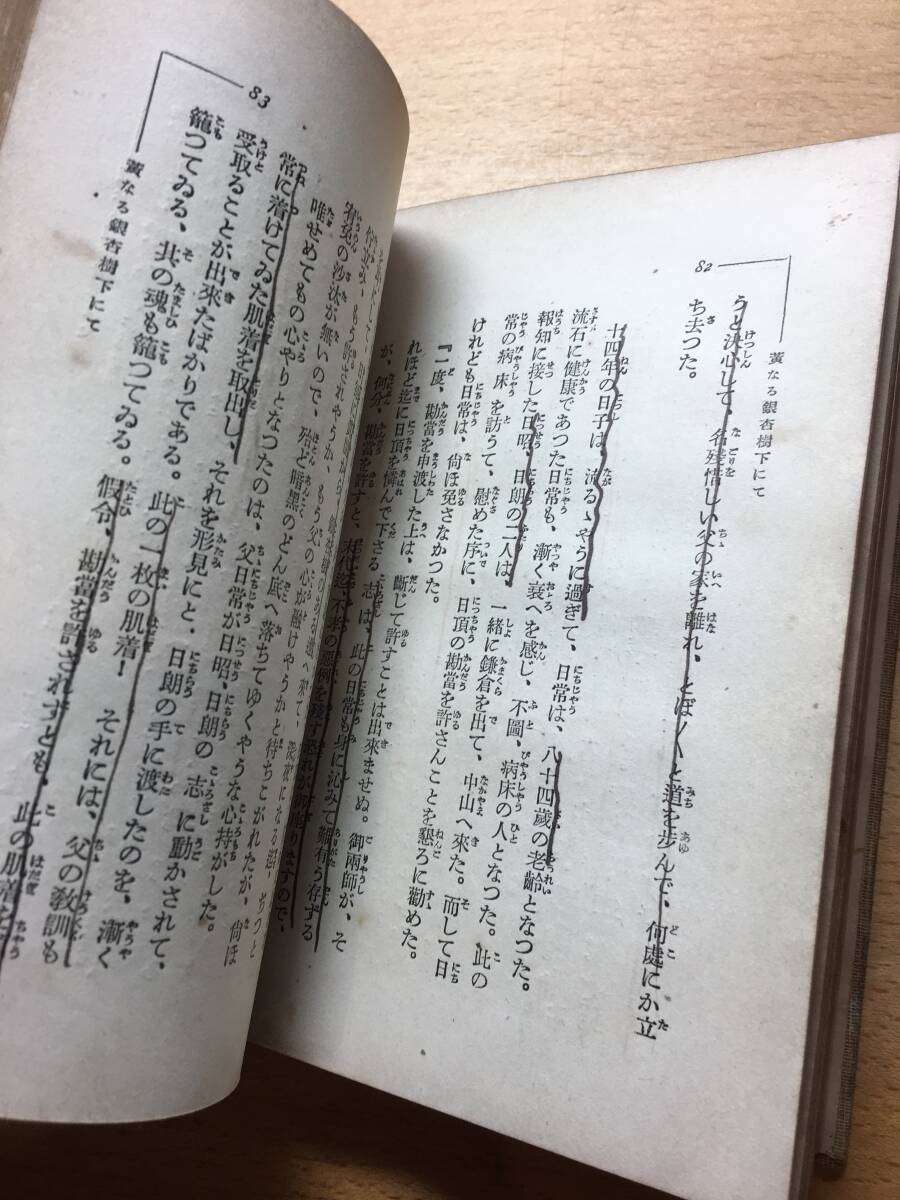 82
黃なる銀杏樹下にて
うと決心して、名殘惜しい父の家を離れ、とぼ〱と道を步んで、何處にか立
ち去つた。
十四年の日子は、流るゝやうに過ぎて、日常は、八十四歲の老齡となつた。
流石に健康であつた日常も、漸く衰へを感じ、不圖、病床の人となつた。此の
報知に接した日昭、日朗の二人は、一緒に鎌倉を出て、中山へ來た。而して日
常の病床を訪うて、慰めた序に、日頂の勘當を許さんことを懇ろに勸めた。
けれども日常は、尙ほ免さなかつた。
『一度、勘當を申渡した上は、斷じて許すことは出來ませぬ。御兩師が、そ
れほど迄に日頂を憐んで下さる志は、此の日常も身に沁みて難有う存ずる
が、何分、勘當を許すと、末代迄、不孝の惡例を殘す恐れが御座りますので、
83
黃なる銀杏樹下にて
佇立み、もう許されやうか、もう父の心が融けやうかと待ちこがれたが、尙ほ
宥免の沙汰が無いので、殆ど暗黑のどん底へ落ちてゆくやうな心持がした。
唯せめてもの心やりとなつたのは、父日常が日昭、日朗の志に動かされて、
常に着けてゐた肌着を取出し、それを形見にと、日朗の手に渡したのを、漸く
受取ることが出來たばかりである。此の一枚の肌着！　それには、父の敎訓も
籠つてゐる、其の魂も籠つてゐる。假令、勘當を許されずとも、此の肌着を